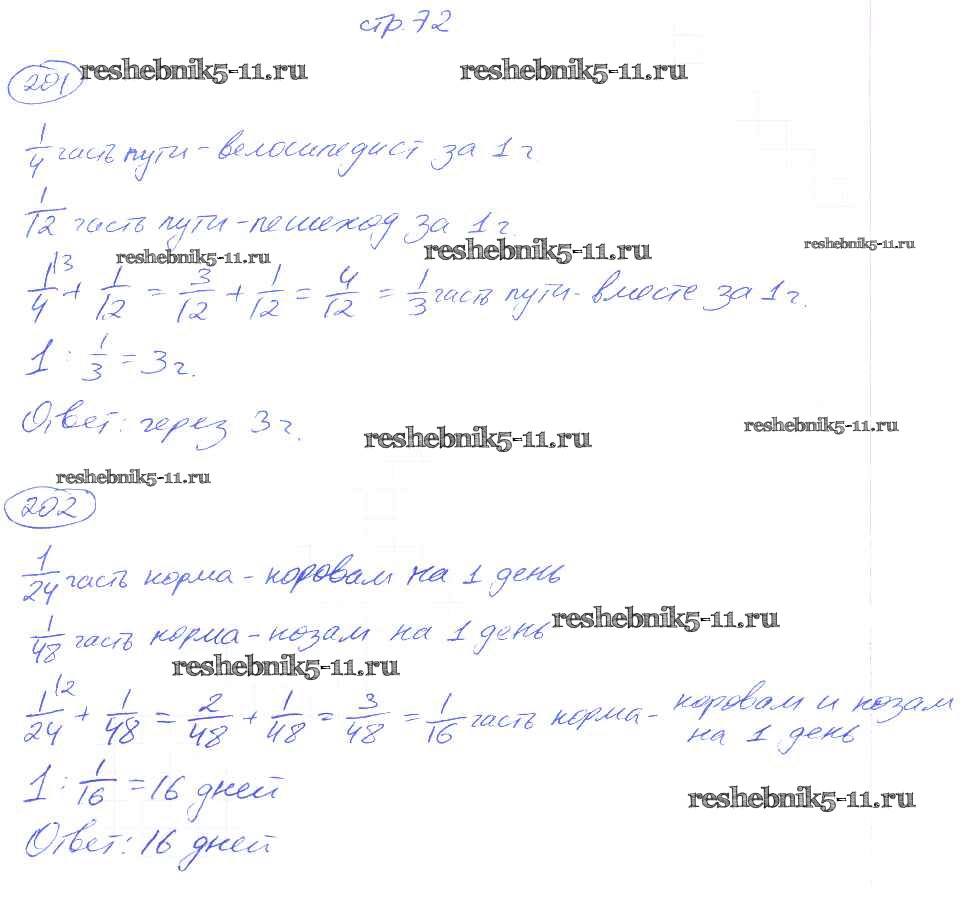 стр. 72
201 reshebnik5-11.ru reshebnik5-11.ru
1/4 часть пути - велосипедист за 1 ч.
1/12 часть пути - пешеход за 1 ч.
reshebnik5-11.ru reshebnik5-11.ru reshebnik5-11.ru
1/4 \3 + 1/12 = 3/12 + 1/12 = 4/12 = 1/3 часть пути - вместе за 1 ч.
1 : 1/3 = 3 ч.
Ответ: через 3 ч.
reshebnik5-11.ru reshebnik5-11.ru
reshebnik5-11.ru
202
1/24 часть корма - коровам на 1 день
1/48 часть корма - козам на 1 день reshebnik5-11.ru
reshebnik5-11.ru
1/24 \2 + 1/48 = 2/48 + 1/48 = 3/48 = 1/16 часть корма - коровам и козам
на 1 день
1 : 1/16 = 16 дней
reshebnik5-11.ru
Ответ: 16 дней